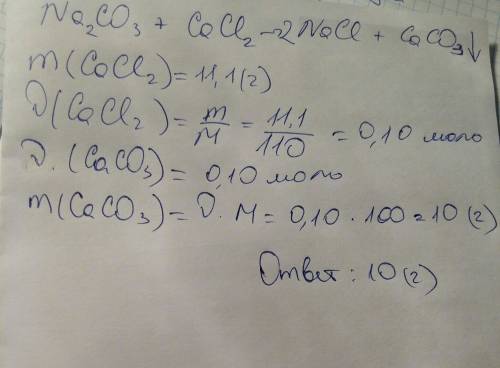 Na₂CO₃ + CaCl₂ → 2NaCl + CaCO₃↓
m(CaCl₂) = 11,1(г)
ν(CaCl₂) = m/M = 11,1/110 = 0,10 моль
ν.(CaCO₃) = 0,10 моль
m(CaCO₃) = ν · M = 0,10 · 100 = 10 (г)
Ответ: 10(г)